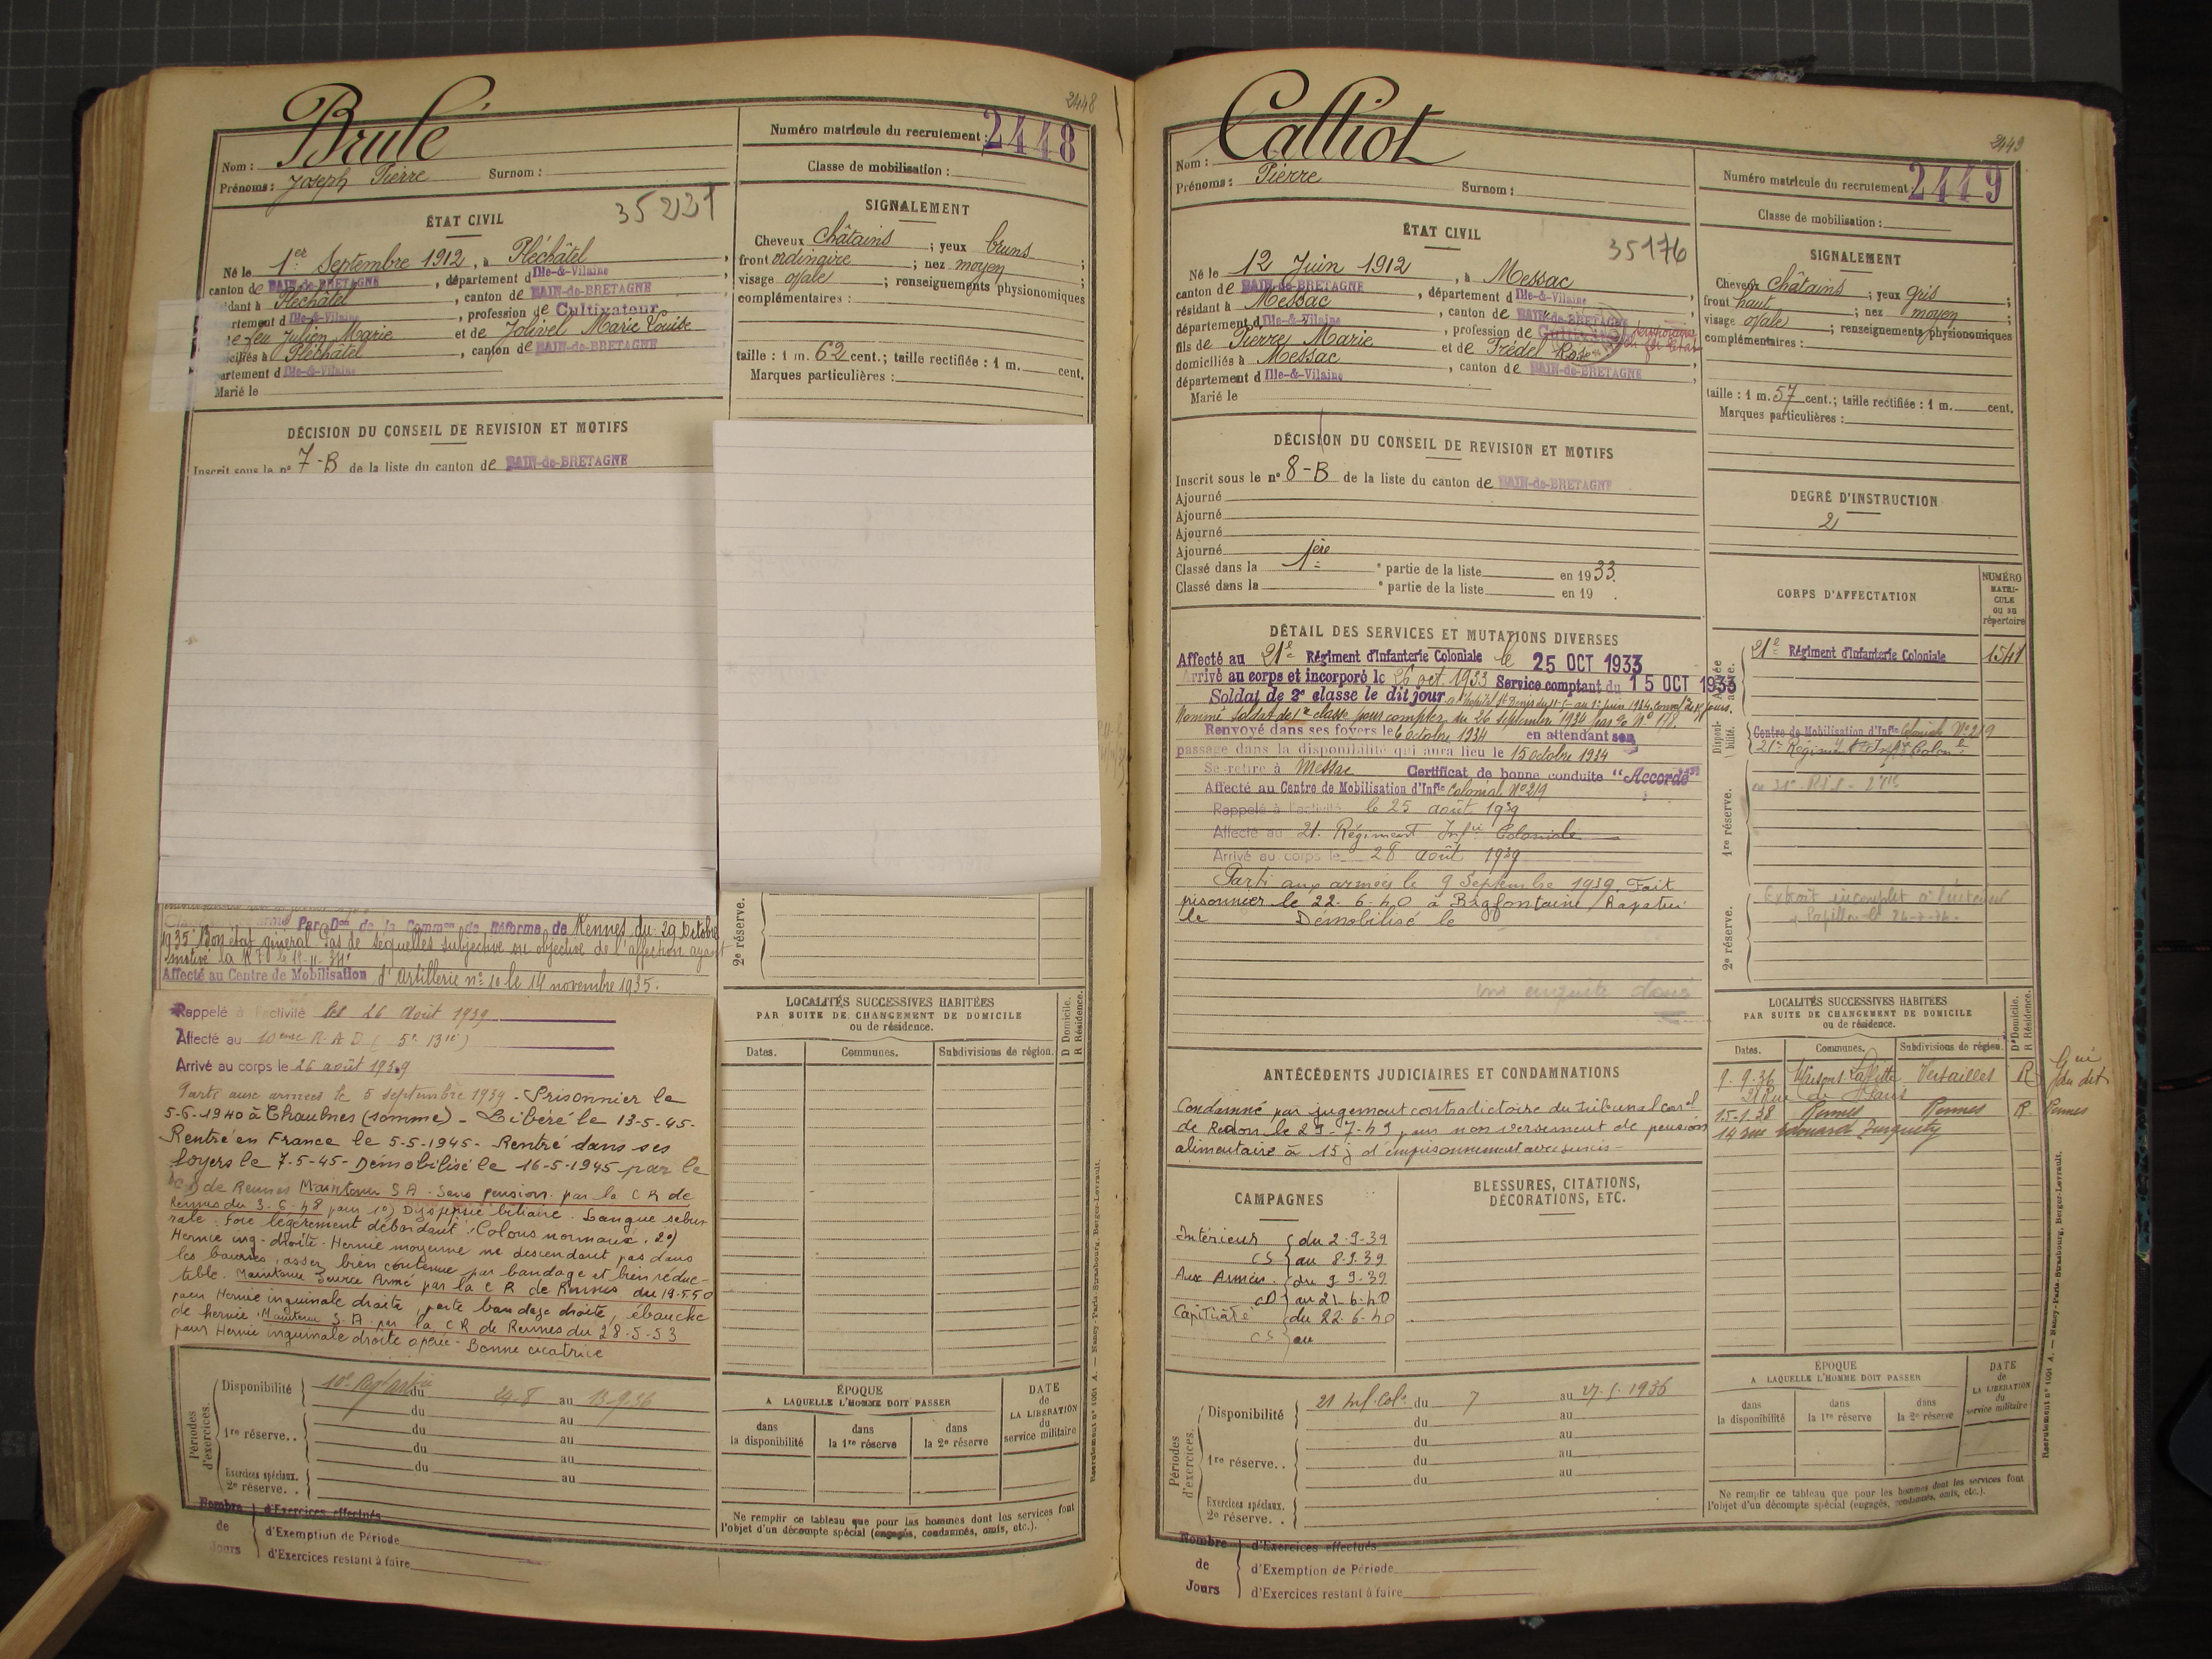 2448
Brulé
Nom :
Prénoms : Joseph Pierre Surnom :
Numéro matricule du recrutement : 2448
Classe de mobilisation :
ÉTAT CIVIL
35231
Né le 1er Septembre 1912, à Pléchâtel,
canton de BAIN-de-BRETAGNE, département d Ille-&-Vilaine
idant à Pléchâtel, canton de BAIN-de-BRETAGNE
artement d Ille-&-Vilaine, profession de Cultivateur
de feu Julien Marie et de Jolivel Marie Louise
iciliés à Pléchâtel, canton de BAIN-de-BRETAGNE
artement d Ille-&-Vilaine
Marié le
SIGNALEMENT
Cheveux châtains ; yeux bruns ;
front ordinaire ; nez moyen ;
visage ovale ; renseignements physionomiques
complémentaires :
taille : 1 m. 62 cent.; taille rectifiée : 1 m. cent.
Marques particulières :
DÉCISION DU CONSEIL DE REVISION ET MOTIFS
Inscrit sous le n° 7-B de la liste du canton de BAIN-de-BRETAGNE
Par Don de la Common de Réforme de Rennes du 29 Octobre
1935 Bon état général Pas de séquelles subjective ou objective de l'affection ayant
motivé la
Affecté au Centre de Mobilisation d'Artillerie n° 10 le 14 novembre 1935.
Rappelé à l'activité le 26 août 1939
Affecté au 10ème R.A.D (5e Bie)
Arrivé au corps le 26 août 1939
Parti aux armées le 5 septembre 1939 - Prisonnier le
5-6-1940 à Chaulnes (Somme) - Libéré le 13-5-45-
Rentré en France le 5-5-1945 - Rentré dans ses
foyers le 7-5-45 - Démobilisé le 16-5-1945 par le
de Rennes Maintenu S A. Sans pension par la C R de
Rennes du 3-6-48 pour 1°) Dyspepsie biliaire. Langue sabur
rale. Foie légèrement débordant. Colons normaux. 2°)
Hernie ing. droite - Hernie moyenne ne descendant pas dans
les bourses, assez bien contenue par bandage et bien réduc-
tible. Maintenu Service Armé par la C R de Rennes du 19-5-50
pour Hernie inguinale droite, porte bandage droite, ébauche
de hernie. Maintenu S.A. par la C R de Rennes du 28-5-53
pour Hernie inguinale droite opérée - Bonne cicatrice
2e réserve.
LOCALITÉS SUCCESSIVES HABITÉES
PAR SUITE DE CHANGEMENT DE DOMICILE
ou de résidence.
D Domicile.
R Résidence.
Dates. Communes. Subdivisions de région.
Périodes d'exercices.
Disponibilité 10e du 24-8 au 13-9-36
du au
1re réserve. . du au
du au
Exercices spéciaux. du au
2e réserve. .
Nombre de Jours
d'Exercices effectués
d'Exemption de Période
d'Exercices restant à faire
ÉPOQUE
A LAQUELLE L'HOMME DOIT PASSER
dans la disponibilité
dans la 1re réserve
dans la 2e réserve
DATE de LA LIBÉRATION du service militaire
Ne remplir ce tableau que pour les hommes dont les services font
l'objet d'un décompte spécial (engagés, condamnés, omis, etc.).
Recrutement n° 1001 A. — Nancy-Paris-Strasbourg, Berger-Levrault.
2449
Calliot
Nom :
Prénoms : Pierre Surnom :
Numéro matricule du recrutement 2449
Classe de mobilisation :
ÉTAT CIVIL
35176
Né le 12 Juin 1912, à Messac,
canton de BAIN-de-BRETAGNE, département d Ille-&-Vilaine,
résidant à Messac, canton de BAIN-de-BRETAGNE
département d Ille-&-Vilaine, profession de Cultivateur
fils de Pierre Marie et de Frédel Rose
domiciliés à Messac, canton de BAIN-de-BRETAGNE,
département d Ille-&-Vilaine
Marié le
SIGNALEMENT
Cheveux châtains ; yeux gris ;
front haut ; nez moyen ;
visage ovale ; renseignements physionomiques
complémentaires :
taille : 1 m. 57 cent.; taille rectifiée : 1 m. cent.
Marques particulières :
DÉCISION DU CONSEIL DE REVISION ET MOTIFS
Inscrit sous le n° 8-B de la liste du canton de BAIN-de-BRETAGNE
Ajourné
Ajourné
Ajourné
Ajourné
Classé dans la 1ère e partie de la liste en 1933.
Classé dans la e partie de la liste en 19 .
DEGRÉ D'INSTRUCTION
2
CORPS D'AFFECTATION
NUMÉRO MATRICULE ou au répertoire
Armée active.
21e Régiment d'Infanterie Coloniale 1541
Disponibilité.
Centre de Mobilisation d'Infie Coloniale N° 219
21e Régiment Infie Colonle
1re réserve.
2e réserve.
Extrait incomplet à l'intérieur
DÉTAIL DES SERVICES ET MUTATIONS DIVERSES
Affecté au 21e Régiment d'Infanterie Coloniale le 25 OCT 1933
Arrivé au corps et incorporé le 26 oct. 1933 Service comptant du 15 OCT 1933
Soldat de 2e classe le dit jour
Nommé soldat de 1re classe pour compter du 26 septembre 1934
Renvoyé dans ses foyers le 6 octobre 1934 en attendant son
passage dans la disponibilité qui aura lieu le 15 octobre 1934
Se retire à Messac Certificat de bonne conduite "Accordé"
Affecté au Centre de Mobilisation d'Infie Colonial N° 219
Rappelé à l'activité le 25 août 1939
Affecté au 21e Régiment Infie Coloniale
Arrivé au corps le 28 août 1939
Parti aux armées le 9 Septembre 1939. Fait
prisonnier le 22-6-40 à Bagfontaine / Rapatrié
le Démobilisé le
ANTÉCÉDENTS JUDICIAIRES ET CONDAMNATIONS
Condamné par jugement contradictoire du Tribunal corel
de Redon le 29-7-49 pour non versement de pension
alimentaire à 15 j d'emprisonnement avec sursis -
CAMPAGNES
Intérieur du 2-9-39
CS au 8.9.39
Aux Armées du 9 9-39
CD au 21-6-40
Captivité du 22-6-40
CS au
BLESSURES, CITATIONS,
DÉCORATIONS, ETC.
LOCALITÉS SUCCESSIVES HABITÉES
PAR SUITE DE CHANGEMENT DE DOMICILE
ou de résidence.
D Domicile.
R Résidence.
Dates. Communes. Subdivisions de région.
9-9-36 Maisons Laffitte Versailles R
Rue de Paris
15-1-38 Rennes Rennes R Rennes
14 rue Edouard Turquety
Périodes d'exercices.
Disponibilité 21 Inf. Cole du 7 au 27-9-1936
du au
1re réserve. . du au
du au
du au
Exercices spéciaux.
2e réserve. .
Nombre de Jours
d'Exercices effectués
d'Exemption de Période
d'Exercices restant à faire
ÉPOQUE
A LAQUELLE L'HOMME DOIT PASSER
dans la disponibilité
dans la 1re réserve
dans la 2e réserve
DATE de LA LIBÉRATION du service militaire
Ne remplir ce tableau que pour les hommes dont les services font
l'objet d'un décompte spécial (engagés, condamnés, omis, etc.).
Recrutement n° 1001 A. — Nancy-Paris-Strasbourg, Berger-Levrault.